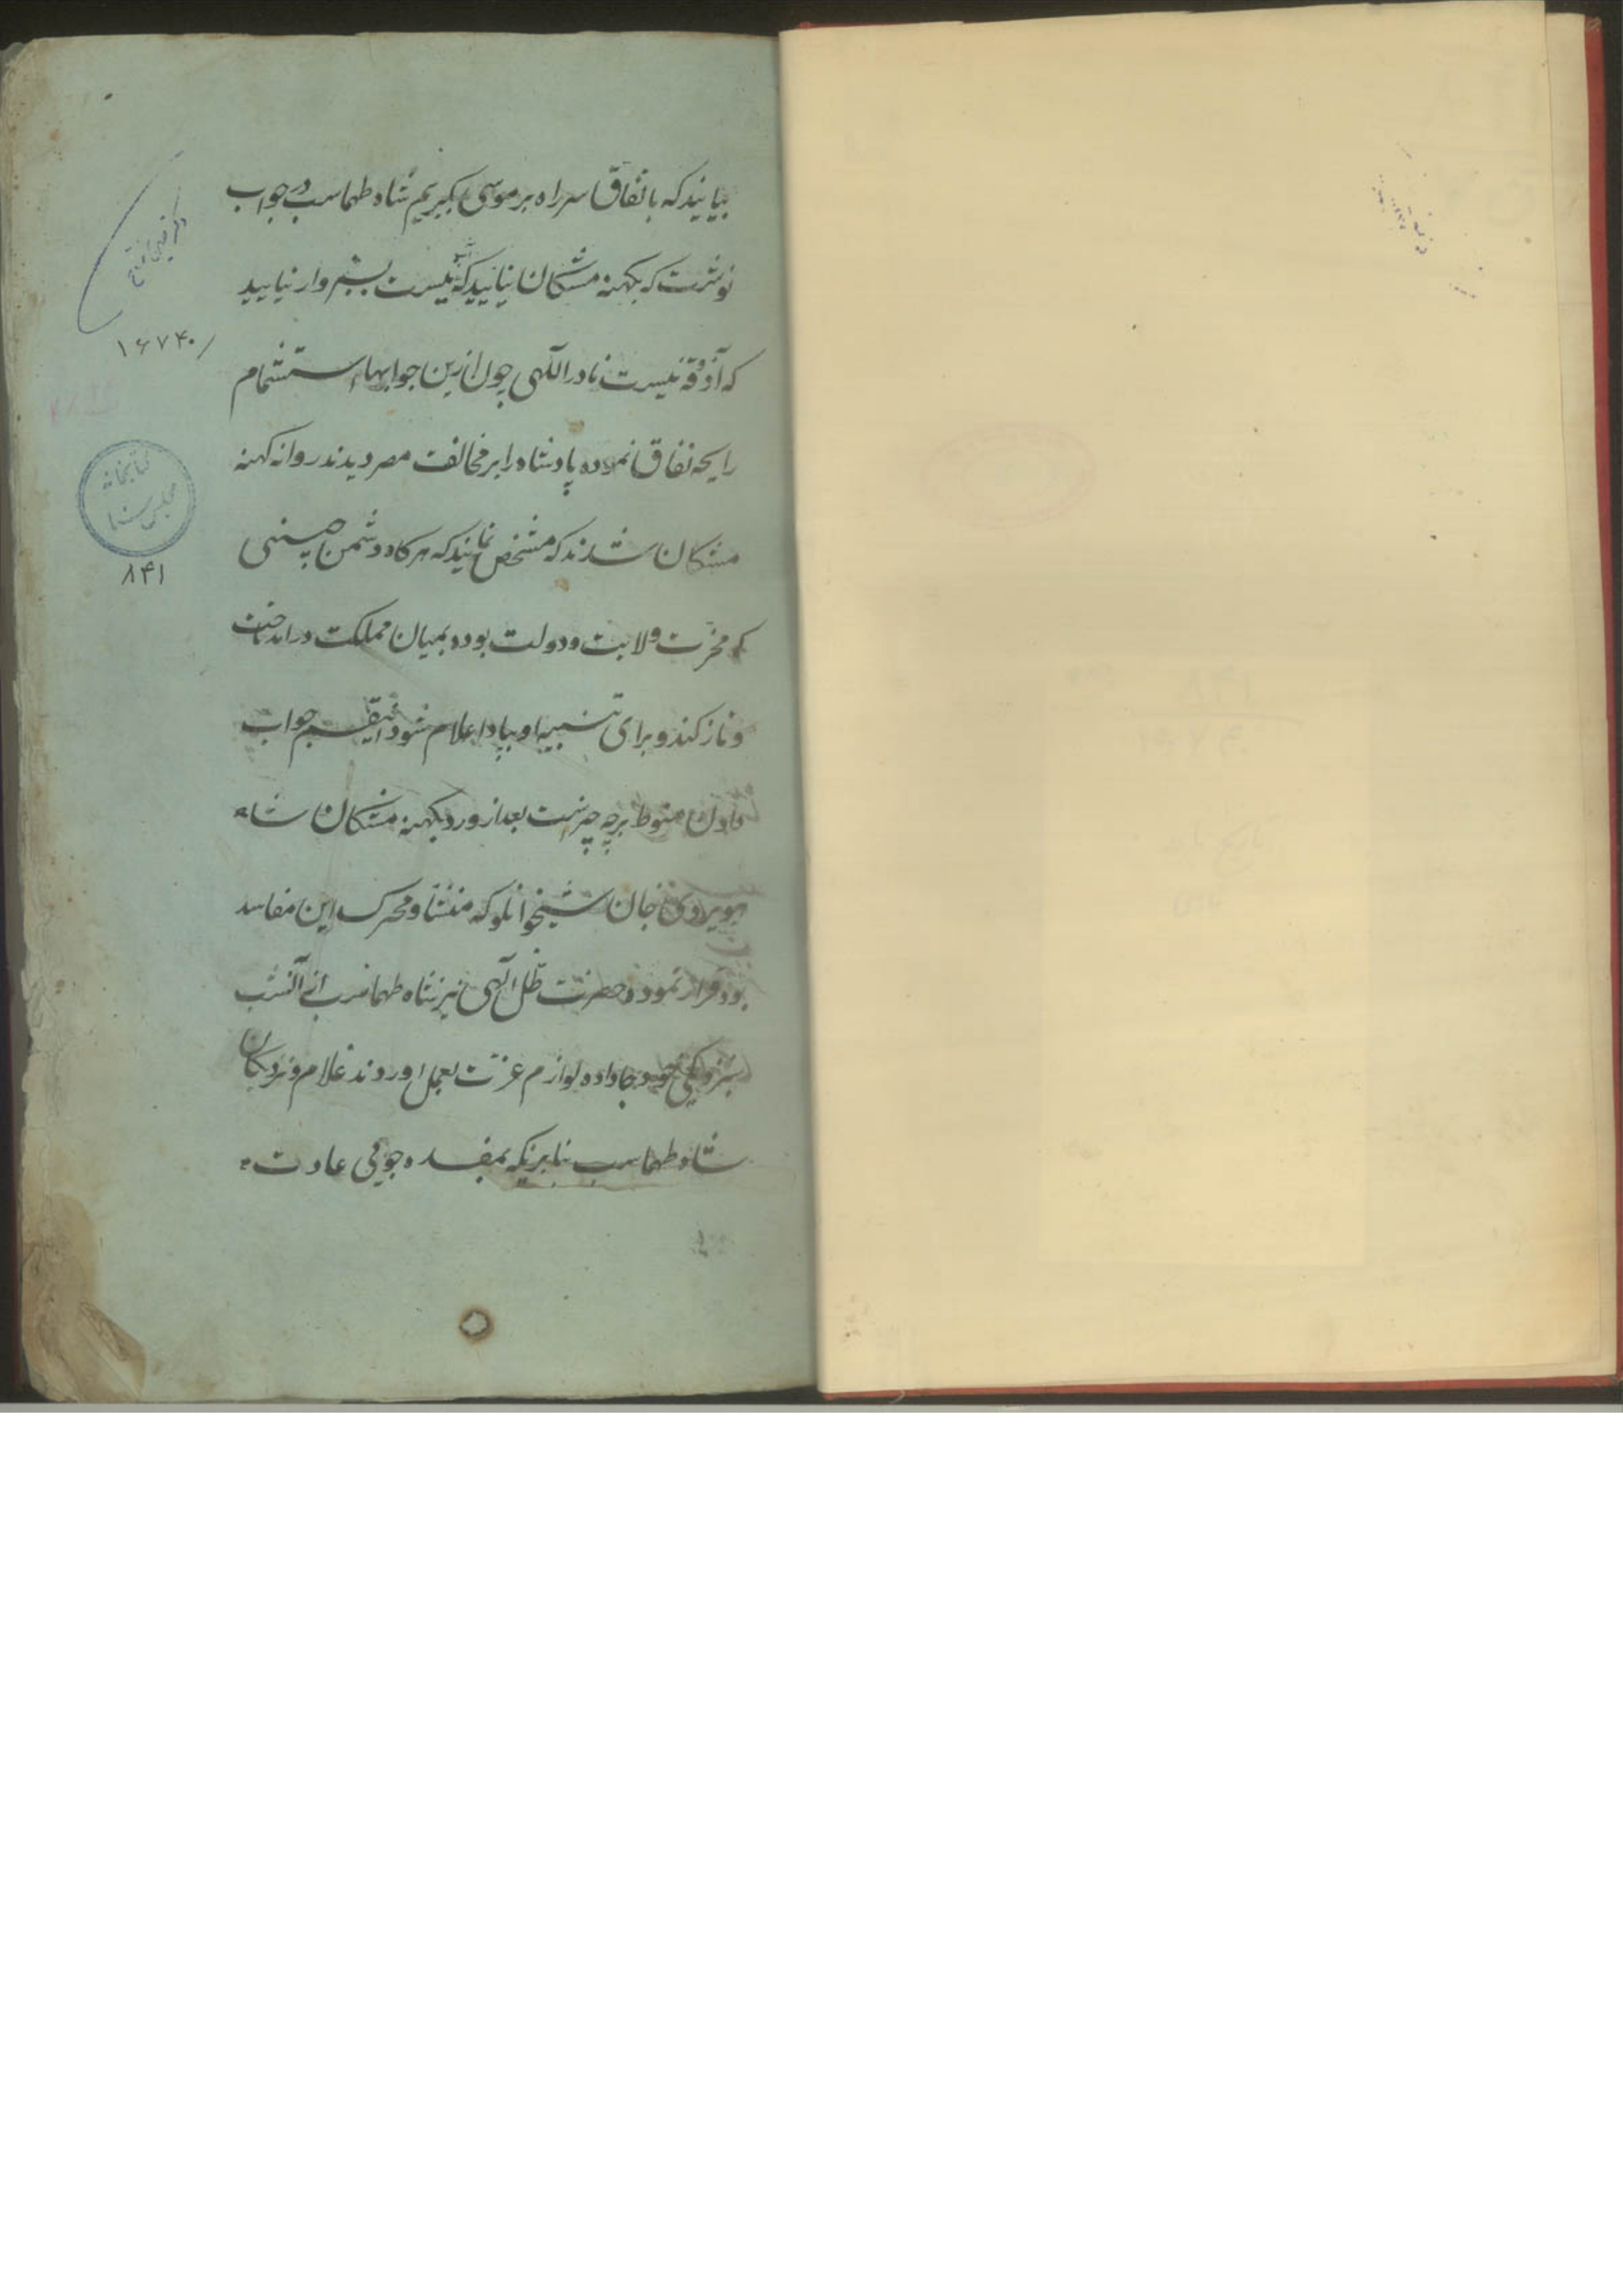 بیایند که باتفاق سر راه بر موسی بگیریم شاه طهماسب در جواب
نوشت که بکهنه مشکان نیایید که آب نیست بسبزوار نیایید
که آذوقه نیست نادر اللهی چون ازین جوابها استشمام
رایحه نفاق نموده پادشاه را بر مخالفت مصر دیدند روانه کهنه
مشکان شدند که مشخص نمایند که هرگاه دشمن چنینی
که مخرب ولایت و دولت بوده بمیان مملکت در
و برای تنبیه او بپادا اعلام شود اینقسم جواب
دادن منوط بر چه چیزست بعد از ورود بکهنه مشکان شاه
ویردی خان شیخوانلو که منشأ و محرک این مفاسد
بود فرار نموده حضرت ظل الهی نیز شاه طهماسب را آنشب
بنزدیکی خود جا داده لوازم عزت بعمل اوردند غلام و نزدیکان
شاه طهماسب بنابرینکه بمفسده جویی عادت
۱۶۷۴۰
کتابخانه
مجلس سنا
۸۴۱